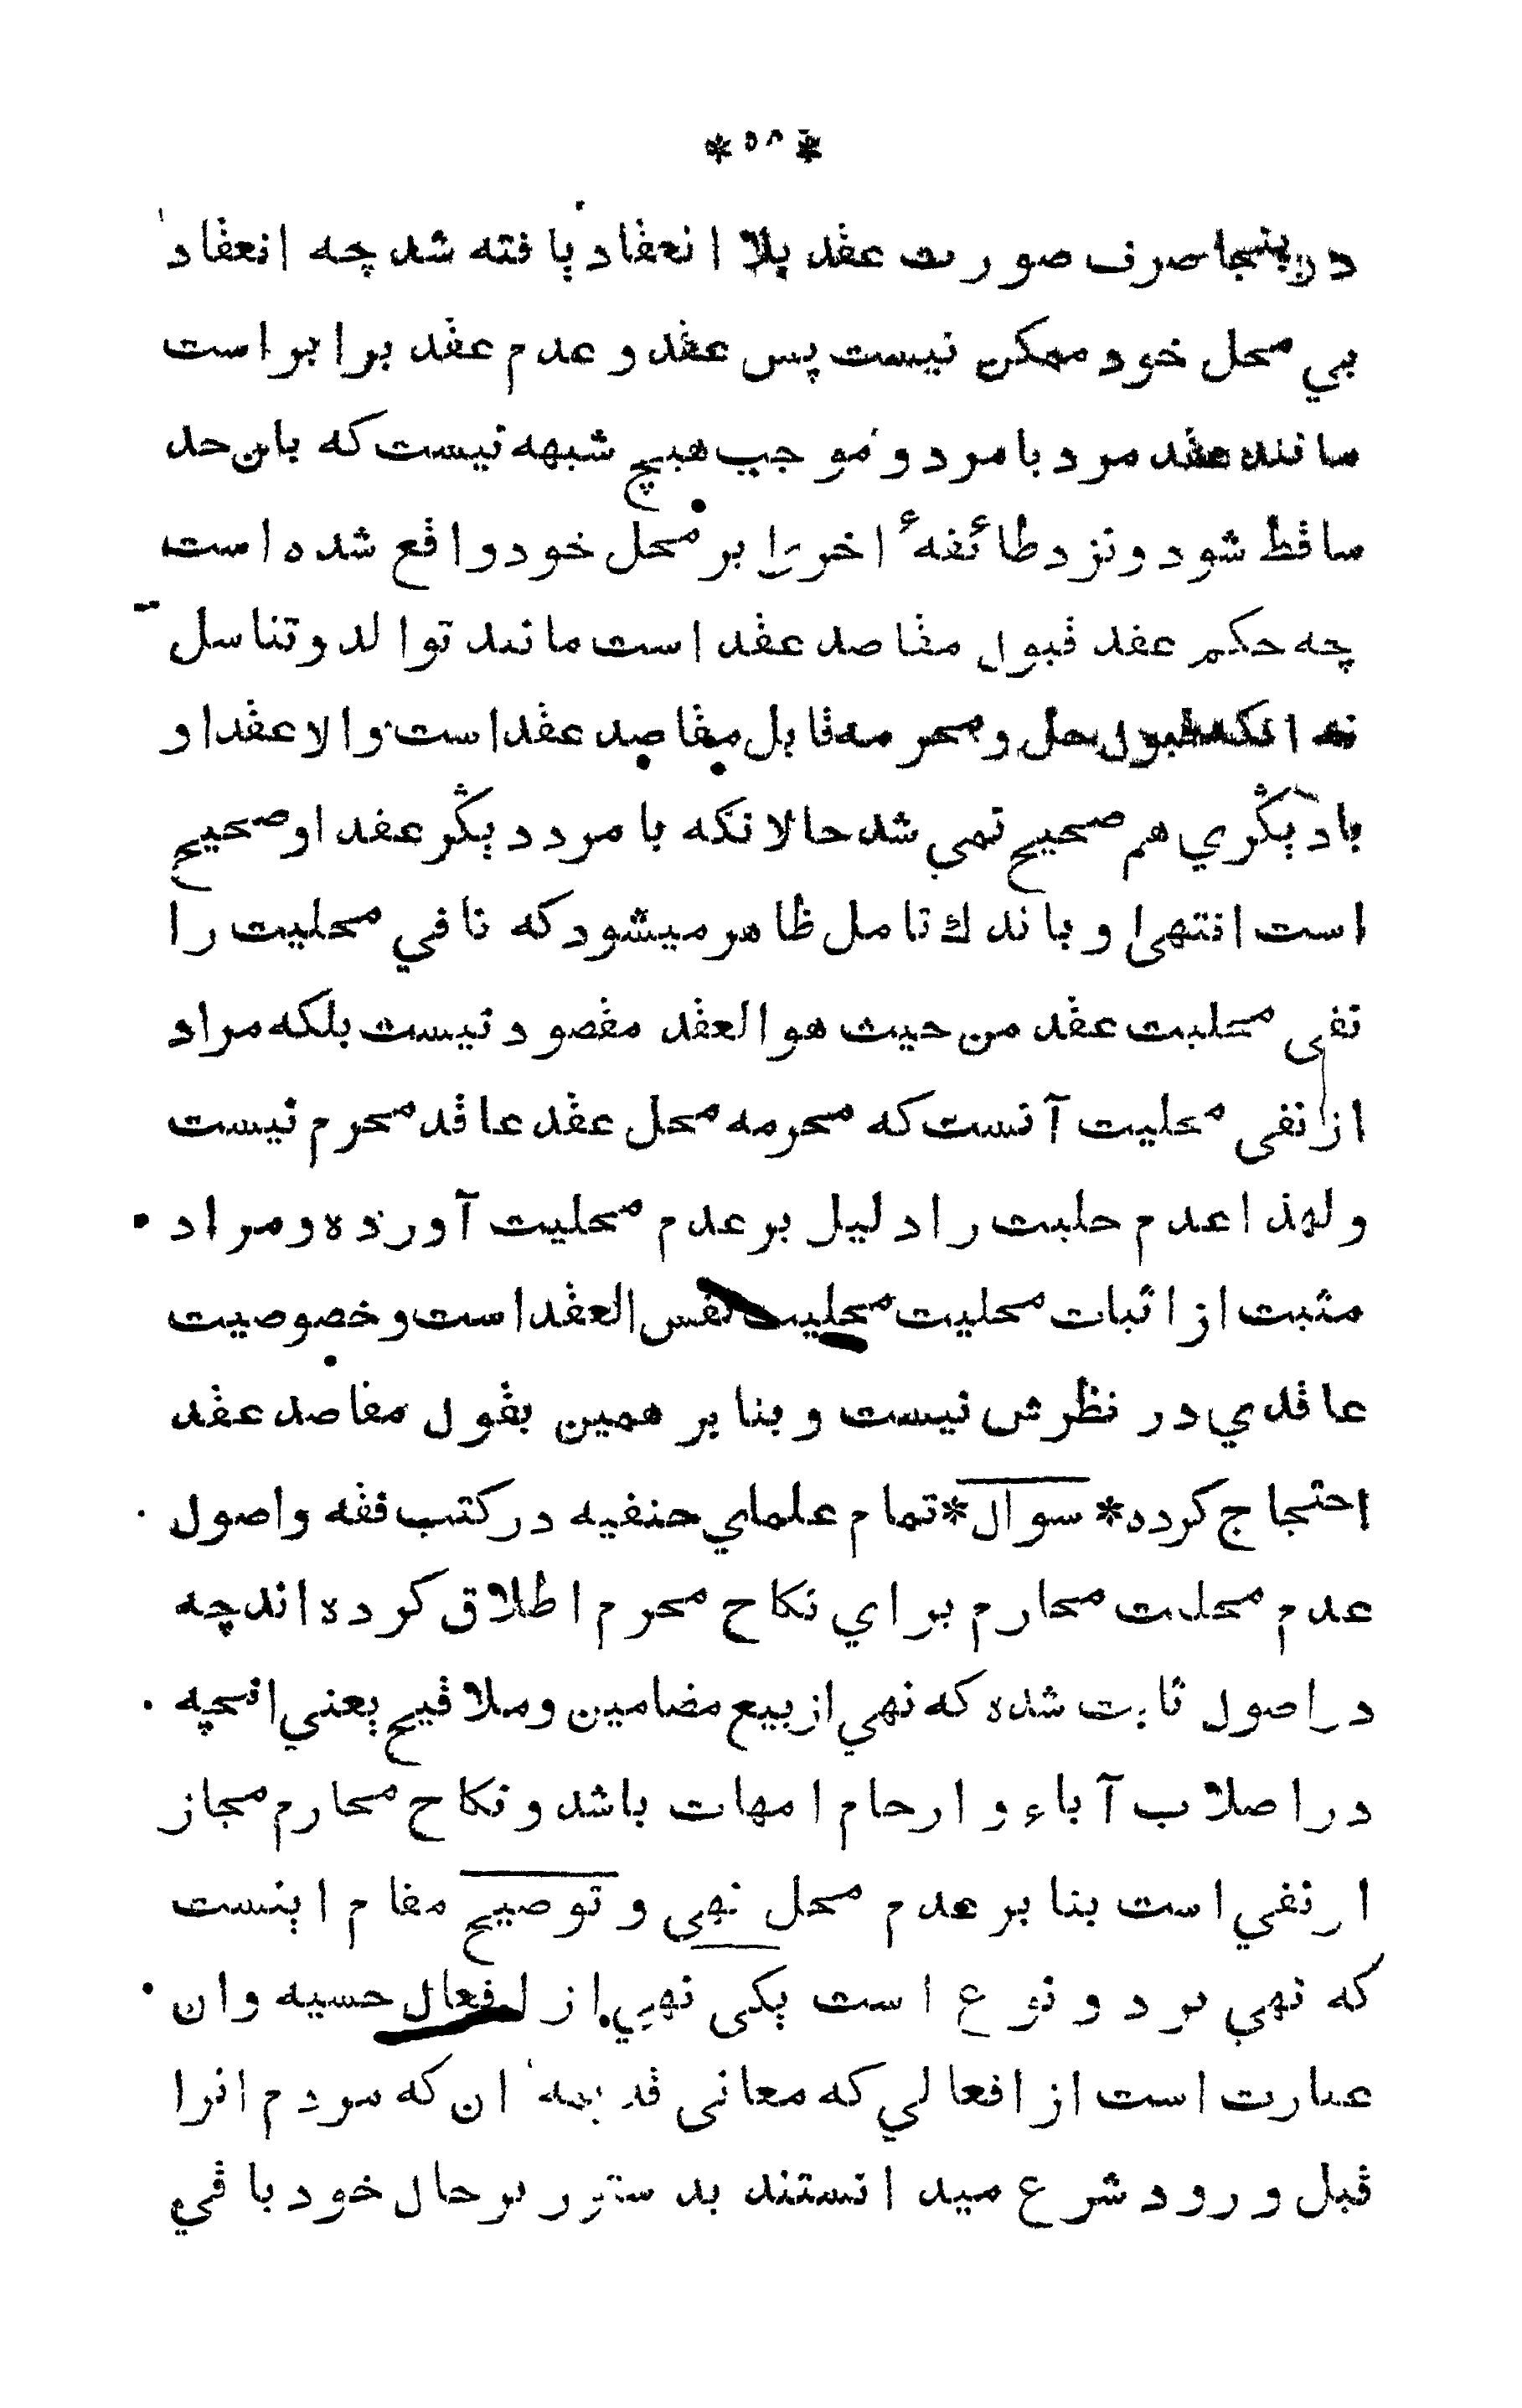 * ٥٨ *
درینجا صرف صورت عقد بلا انعقاد یافته شد چه انعقاد
بي محل خود ممکن نیست پس عقد و عدم عقد برابر است
مانند عقد مرد با مرد و موجب هیچ شبهه نیست که بان حد
ساقط شود و نزد طائفهٔ اخریٰ بر محل خود واقع شده است
چه حکم عقد قبول مقاصد عقد است مانند توالد و تناسل
نه انکه قبول حل و محرمه قابل مقاصد عقد است والا عقد او
با دیگري هم صحیح نمي شد حالانکه با مرد دیگر عقد او صحیح
است انتهی و باندك تامل ظاهر میشود که نافي محلیت را
نفی محلیت عقد من حیث هو العقد مقصود نیست بلکه مراد
از نفی محلیت آنست که محرمه محل عقد عاقد محرم نیست
ولهذا عدم حلیت را دلیل بر عدم محلیت آورده و مراد
مثبت از اثبات محلیت محلیت نفس العقد است و خصوصیت
عاقدي در نظرش نیست و بنا بر همین بقول مقاصد عقد
احتجاج کرده * سوال * تمام علماي حنفیه در کتب فقه و اصول
عدم محلیت محارم براي نکاح محرم اطلاق کرده اند چه
در اصول ثابت شده که نهي از بیع مضامین و ملاقیح یعني انچه
در اصلاب آباء و ارحام امهات باشد و نکاح محارم مجاز
از نفي است بنا بر عدم محل نهی و توضیح مقام اینست
که نهي بر دو نوع است یکی نهي از افعال حسیه وان
عبارت است از افعالي که معانی قدیمهٔ ان که مردم انرا
قبل ورود شرع میدانستند بدستور بر حال خود باقي